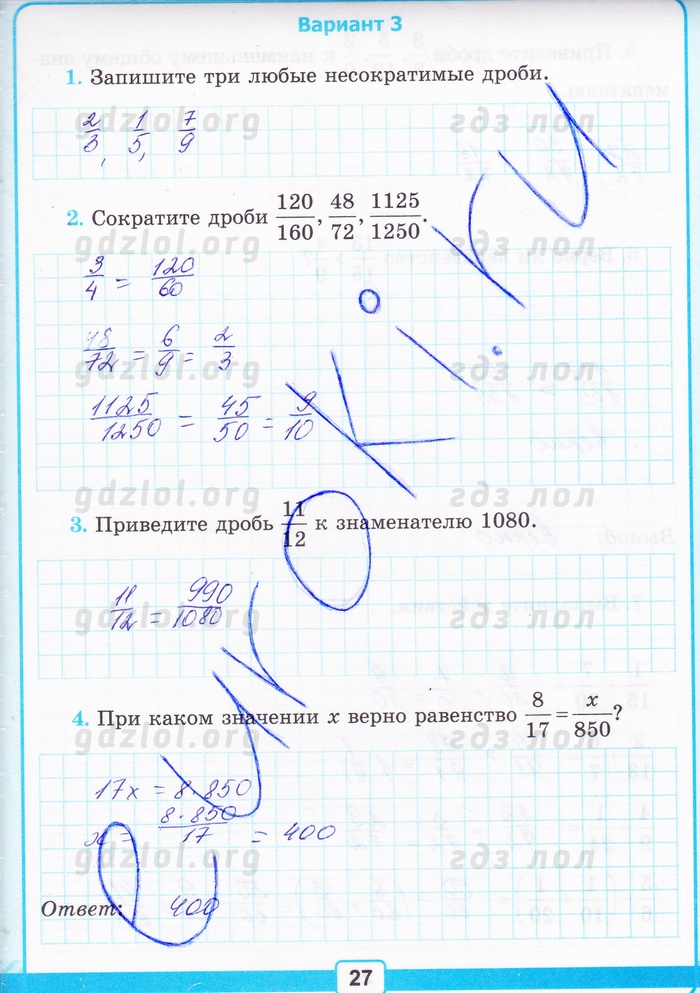 Вариант 3
1. Запишите три любые несократимые дроби.
gdzlol.org гдз лол
2/3, 1/5, 7/9
2. Сократите дроби 120/160, 48/72, 1125/1250.
gdzlol.org гдз лол
3/4 = 120/60
48/72 = 6/9 = 2/3
gdzlol.org гдз лол
1125/1250 = 45/50 = 9/10
gdzlol.org гдз лол
3. Приведите дробь 11/12 к знаменателю 1080.
11/12 = 990/1080
gdzlol.org гдз лол
4. При каком значении x верно равенство 8/17 = x/850?
gdzlol.org гдз лол
17x = 8·850
x = 8·850/17 = 400
gdzlol.org гдз лол
Ответ: 400
27